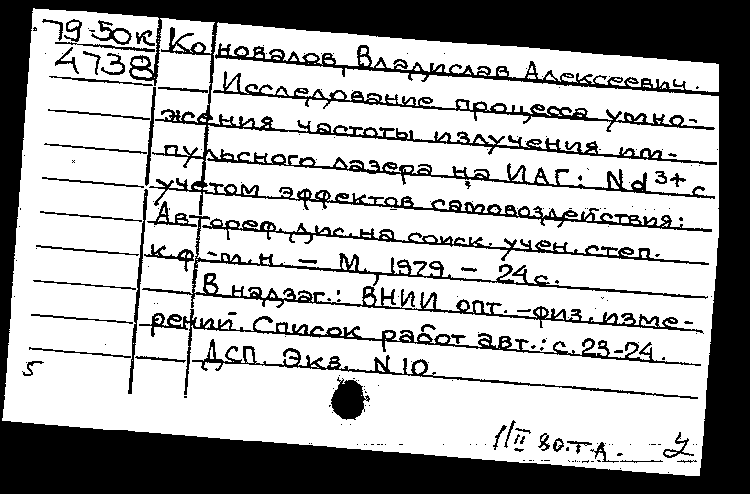 79-50к Коновалов, Владислав Алексеевич.
4738 Исследование процесса умно-
жения частоты излучения им-
пульсного лазера на ИАГ: Nd³⁺ с
учетом эффектов самовоздействия:
Автореф. дис. на соиск. учен. степ.
к.ф.-м.н. – М., 1979. – 24 с.
В надзаг.: ВНИИ опт.-физ. изме-
рений. Список работ авт.: с. 23-24.
ДСП. Экз. N 10.
5
1/II 80. Т-А. У